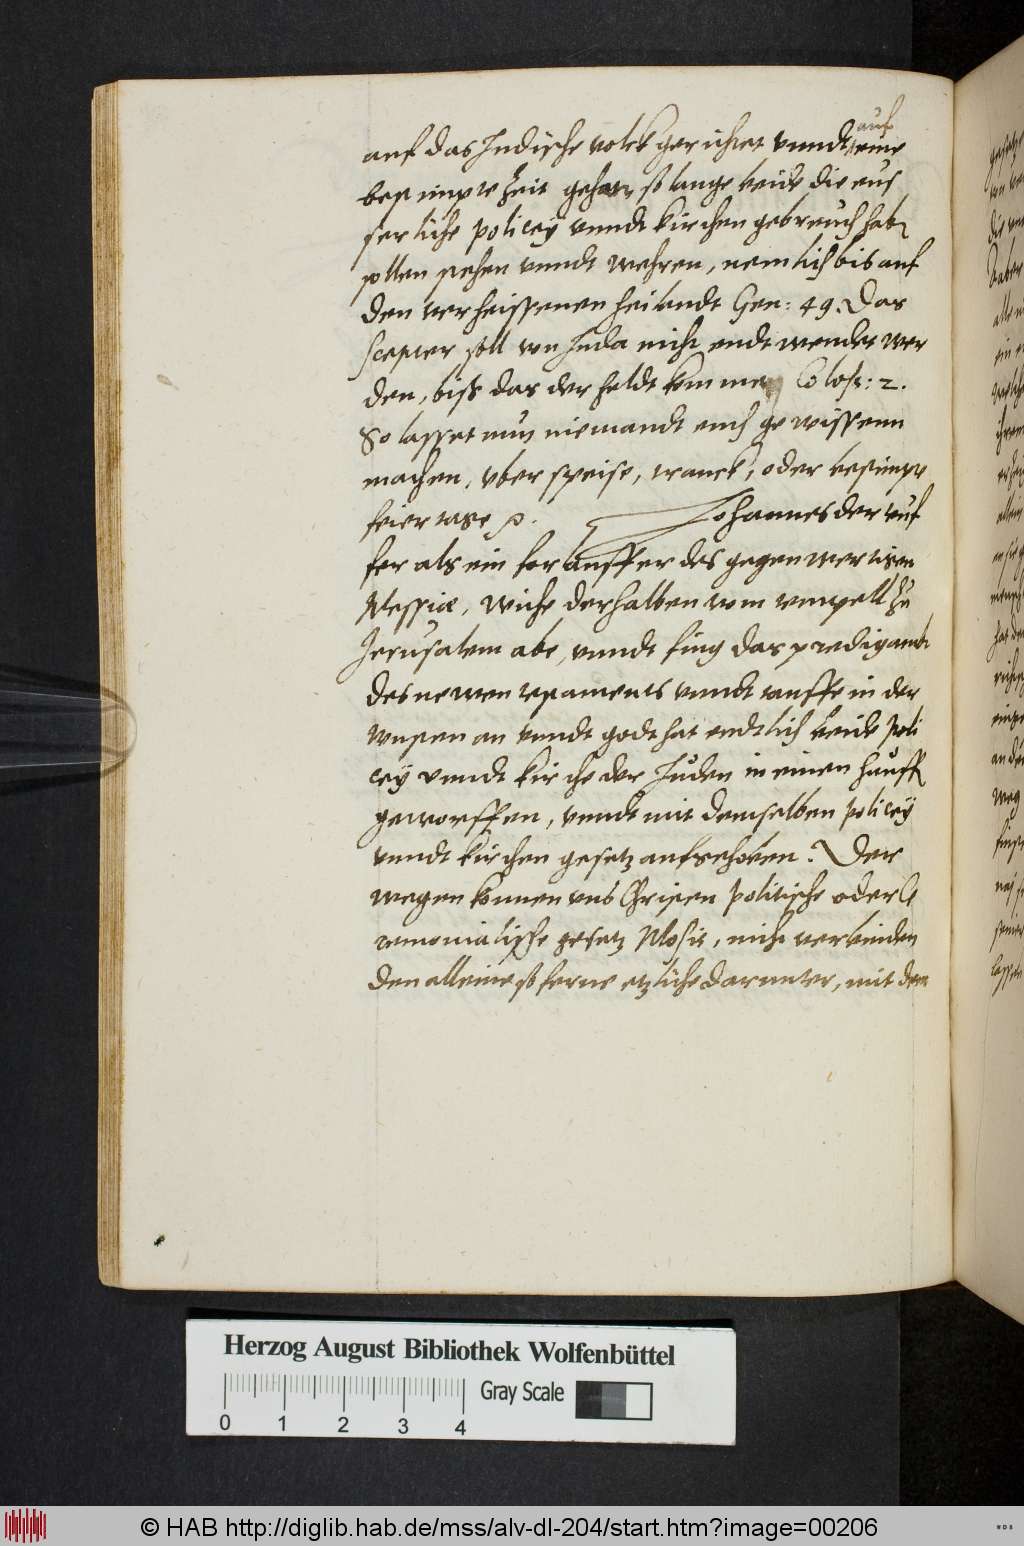 auf
auf das Judische volck gerichtet vnndt eine
bestimpte Zeit gehatt, so lange beide die eus
serliche policey vnndt kirchen gebreuch hab
sollen stehen vnndt wehren, nemlich bis auf
den verheissenen heilandt Gen: 49. Das
scepter soll von Juda nicht endtwendet wer
den, biss das der heldt komme Coloss: 2.
So lasset nun niemandt euch gewissenn
machen, vber speise, tranck, oder bestimpte
feiertage
Johannes der teuf
fer als ein forleuffer des gegenwertigen
Messiae, wiche derhalben vom tempell zu
Jerusalem abe, vnndt fing das predigambt
des newen testaments vnndt tauffe in der
wusten an vnndt godt hat endtlich beide poli
cey vnndt kirche der Juden in einen hauff
geworffen, vnndt mit demselben policey
vnndt kirchen gesetz aufgehoben. Der
wegen konnen vns Christen politische oder Ce
remonialisse gesetz Mosis, nicht verbinden
den alleine so ferne etzliche darunter, mit dem
Herzog August Bibliothek Wolfenbüttel
Gray Scale
0 1 2 3 4
© HAB http://diglib.hab.de/mss/alv-dl-204/start.htm?image=00206